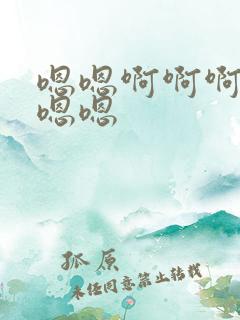 嗯嗯啊啊啊
嗯嗯
孤原
未经同意禁止转载